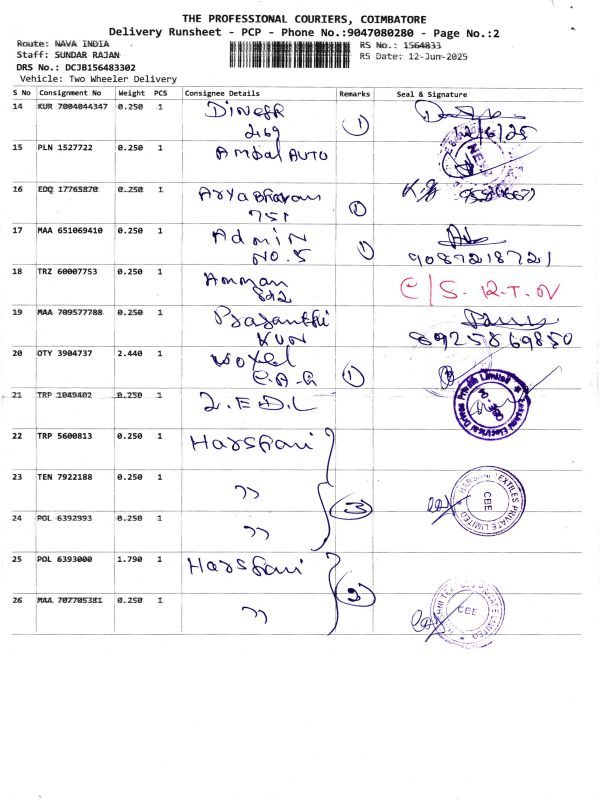 THE PROFESSIONAL COURIERS, COIMBATORE
Delivery Runsheet - PCP - Phone No.:9047080280 - Page No.:2
Route: NAVA INDIA
RS No.: 1564833
Staff: SUNDAR RAJAN
RS Date: 12-Jun-2025
DRS No.: DCJB156483302
Vehicle: Two Wheeler Delivery
S No Consignment No Weight PCS Consignee Details Remarks Seal & Signature
14 KUR 7004044347 0.250 1 DINESH
269 1 12/6/25
15 PLN 1527722 0.250 1 Ambal AUTO
16 EDQ 17765870 0.250 1 Aryabhavan
751 1
17 MAA 651069410 0.250 1 Admin
NO.5 1 9087218721
18 TRZ 60007753 0.250 1 Amman
822 C/S. R.T.O
19 MAA 709577788 0.250 1 Basanthi
KUN 8925869850
20 OTY 3904737 2.440 1
C.A.G 1
21 TRP 1049402 0.250 1 L.E.D.L
Lakshmi Electrical Drives Private Limited
22 TRP 5600813 0.250 1 Harshni
23 TEN 7922188 0.250 1 ”
3 HARSHNI TEXTILES PRIVATE LIMITED
CBE
24 POL 6392993 0.250 1 ”
25 POL 6393000 1.790 1 Harshni
2
26 MAA 707705381 0.250 1 ”
CBE